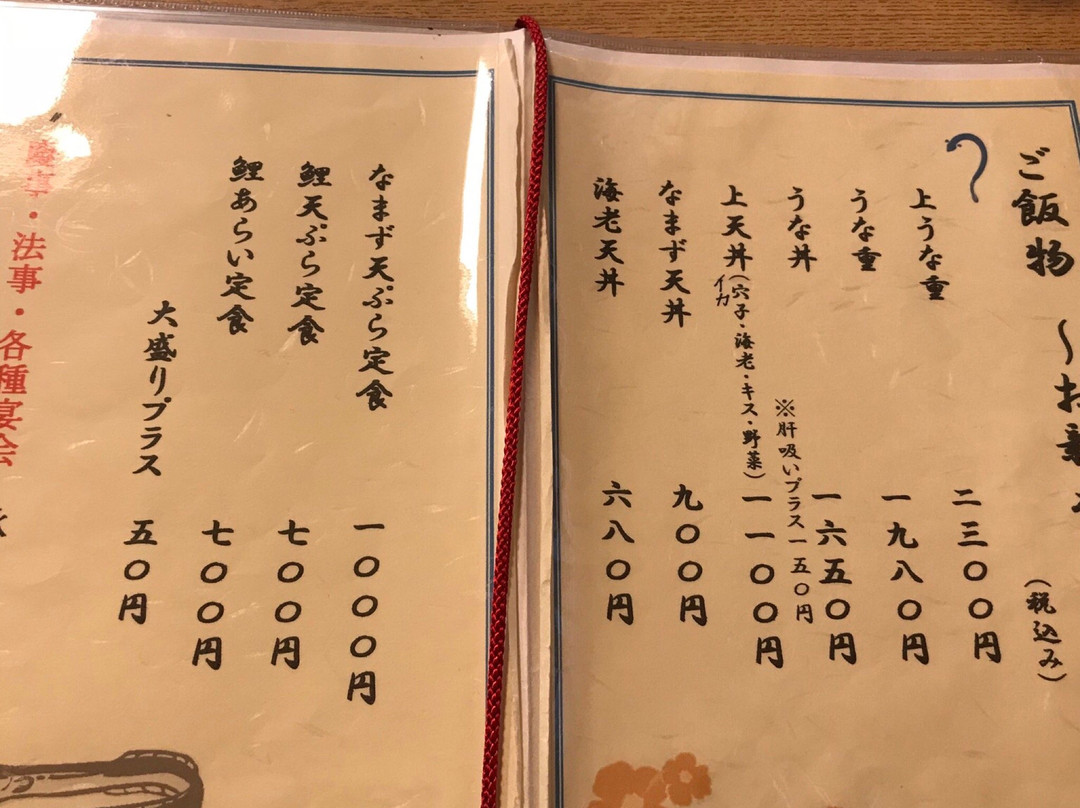 ご飯物 〜お
(税込み)
上うな重 二三〇〇円
うな重 一九八〇円
うな丼 一六五〇円
※肝吸いプラス一五〇円
上天丼(穴子・海老・キス・野菜) 一一〇〇円
イカ
なまず天丼 九〇〇円
海老天丼 六八〇円
なまず天ぷら定食 一〇〇〇円
鯉天ぷら定食 七〇〇円
鯉あらい定食 七〇〇円
大盛りプラス 五〇円
慶事・法事・各種宴会